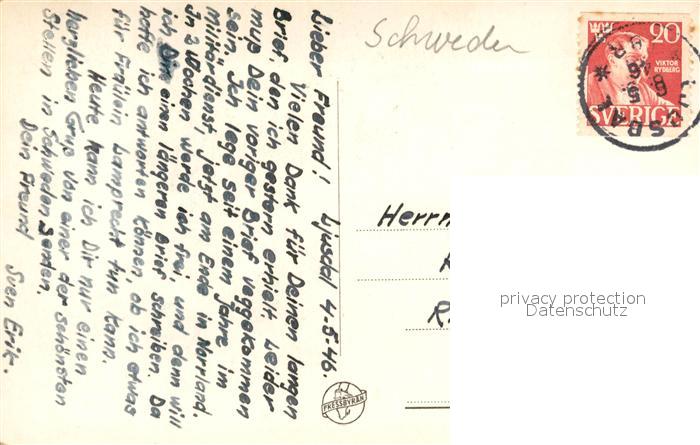 Schweden
Lieber Freund! Ljusdal 4.5.46.
Vielen Dank für Deinen langen
Brief, den ich gestern erhielt. Leider
muß Dein voriger Brief weggekommen
sein. Ich lege seit einem Jahre im
Militärdienst, jetzt am Ende in Norrland.
In 2 Wochen werde ich frei, und dann will
ich Dir einen längeren Brief schreiben. Da
hoffe ich antworten können, ob ich etwas
für Fräulein Lamprecht tun kann.
Heute kann ich Dir nur einen
herzlichen Gruß von einer der schönsten
Stellen in Schweden senden.
Dein Freund
Sven Erik.
20
VIKTOR
RYDBERG
SVERIGE
Herrn
R.
PRESSBYRÅN
privacy protection
Datenschutz